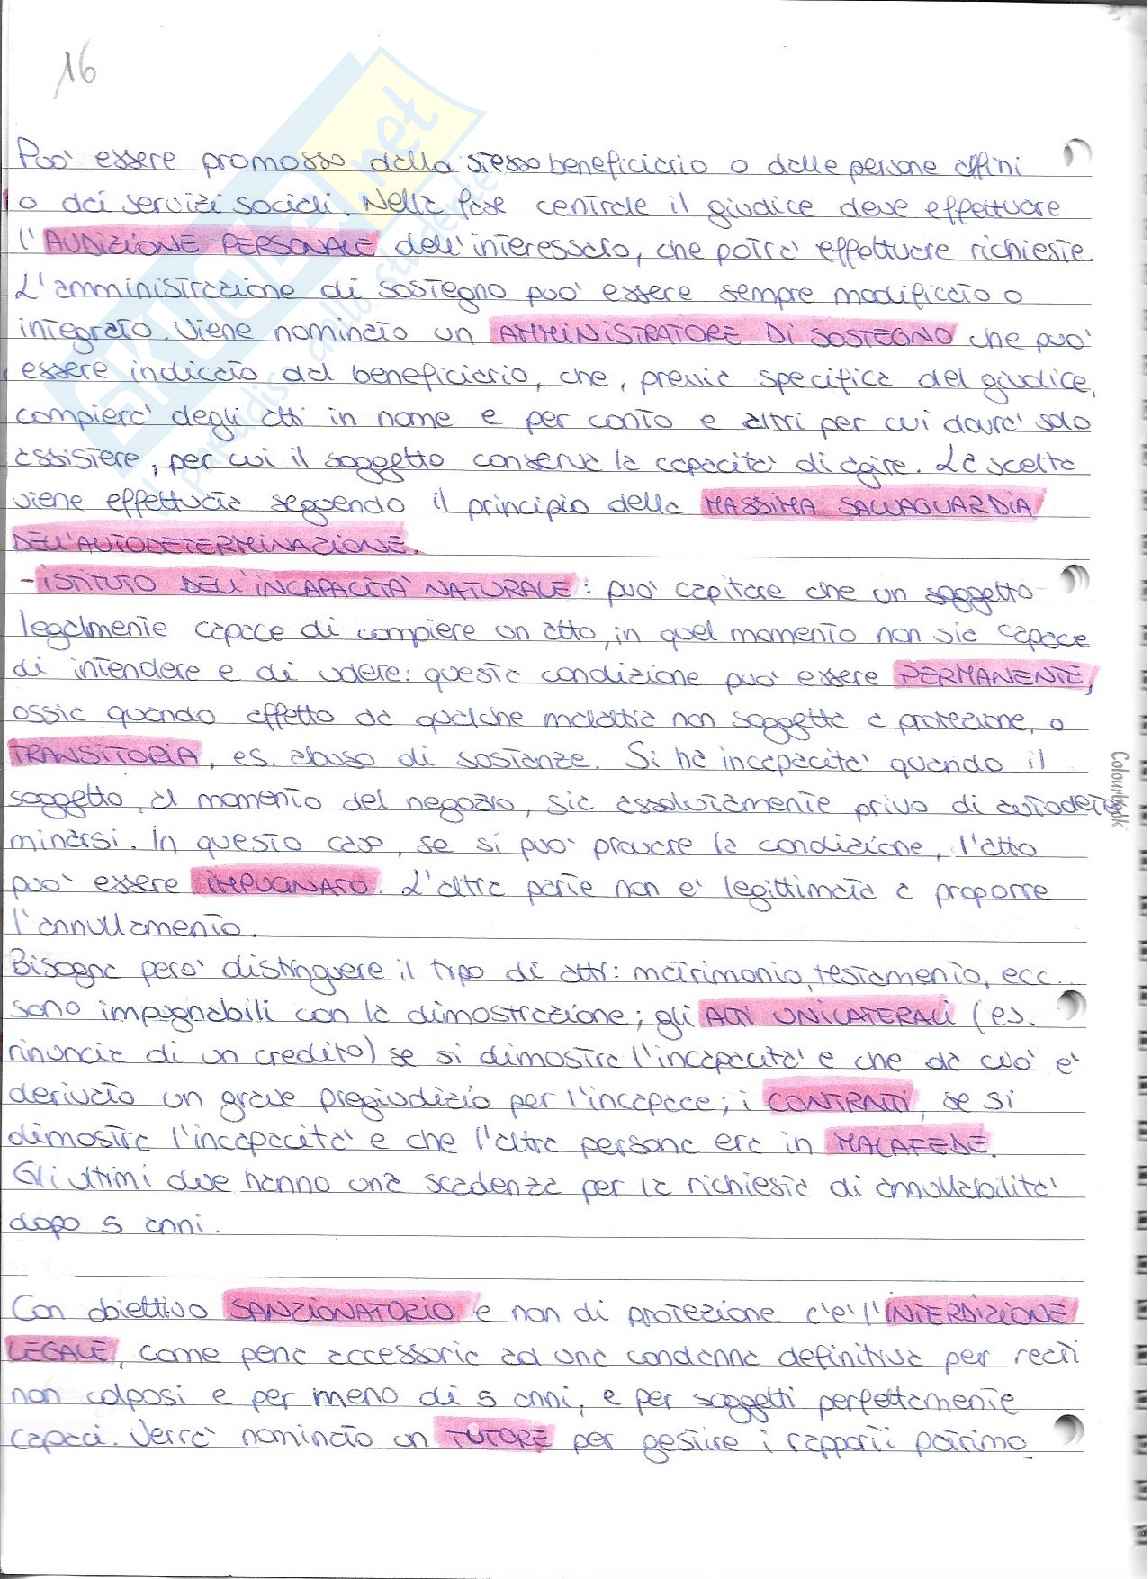 16
Può essere promosso dalla stesso beneficiario o dalle persone affini
o dai servizi sociali. Nella fase centrale il giudice deve effettuare
l'AUDIZIONE PERSONALE dell'interessato, che potrà effettuare richieste.
L'amministrazione di sostegno può essere sempre modificato o
integrato. Viene nominato un AMMINISTRATORE DI SOSTEGNO che può
essere indicato dal beneficiario, che, previa specifica del giudice,
compierà degli atti in nome e per conto e altri per cui dovrà solo
assistere, per cui il soggetto conserva la capacità di agire. La scelta
viene effettuata seguendo il principio della MASSIMA SALVAGUARDIA
DELL'AUTODETERMINAZIONE.
- ISTITUTO DELL'INCAPACITÀ NATURALE: può capitare che un soggetto
legalmente capace di compiere un atto, in quel momento non sia capace
di intendere e di volere: questa condizione può essere PERMANENTE,
ossia quando affetto da qualche malattia non soggetta a protezione, o
TRANSITORIA, es. abuso di sostanze. Si ha incapacità quando il
soggetto, al momento del negozio, sia assolutamente privo di autodeter
minarsi. In questo caso, se si può provare la condizione, l'atto
può essere IMPUGNATO. L'altra parte non è legittimata a proporre
l'annullamento.
Bisogna però distinguere il tipo di atti: matrimonio, testamento, ecc..
sono impugnabili con la dimostrazione; gli ATTI UNILATERALI (es.
rinuncia di un credito) se si dimostra l'incapacità e che da ciò è
derivato un grave pregiudizio per l'incapace; i CONTRATTI, se si
dimostra l'incapacità e che l'altra persona era in MALAFEDE.
Gli ultimi due hanno una scadenza per la richiesta di annullabilità
dopo 5 anni.
Con obiettivo SANZIONATORIO e non di protezione c'è l'INTERDIZIONE
LEGALE, come pena accessoria ad una condanna definitiva per reati
non colposi e per meno di 5 anni, e per soggetti perfettamente
capaci. Verrà nominato un TUTORE per gestire i rapporti patrimo